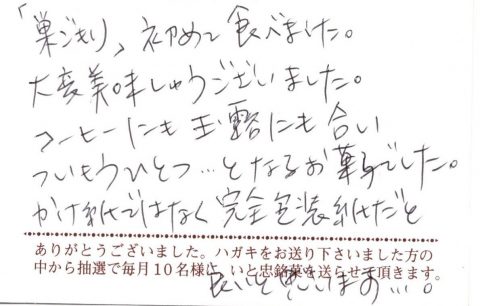 「巣ごもり」初めて食べました。
大変美味しゅうございました。
コーヒーにも玉露にも合い
ついもうひとつ…となるお菓子でした。
かけ紙ではなく完全包装紙だと
ありがとうございました。ハガキをお送り下さいました方の
中から抽選で毎月10名様に、いと忠銘菓を送らせて頂きます。
良いと思います…。